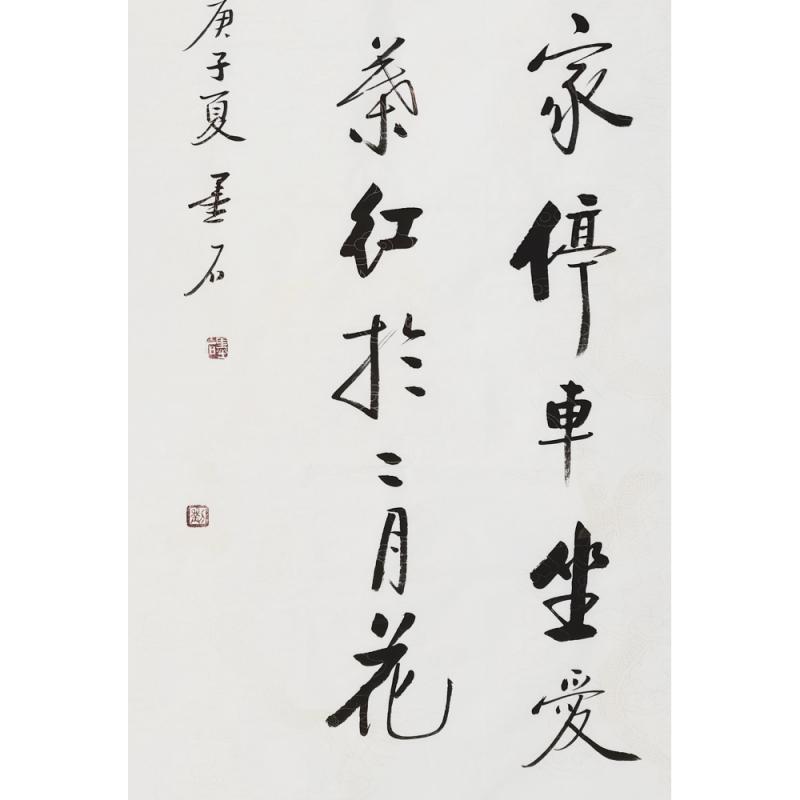 家停車坐愛
葉紅於二月花
庚子夏 墨石